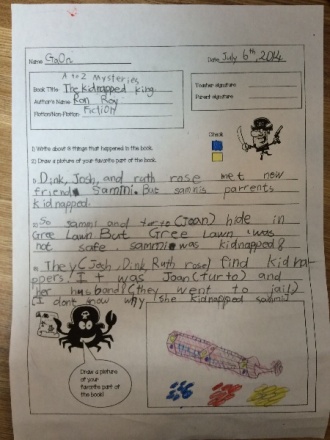 Name: GaOn
Date: July 6th, 2014
A to Z Mysteries
Book Title: The kidnapped king
Author's Name: Ron Roy
Fiction/Non-Fiction: Fiction
Teacher signature:
Parent signature:
Check
1) Write about things that happened in the book.
2) Draw a picture of your favorite part of the book.
Dink, Josh, and ruth rose met new
friend Sammi. But sammis parrents
kidnapped.
So sammi and (Joan) hide in
Gree Lawn But Gree Lawn was
not safe sammi was kidnapped
They (Josh, Dink, Ruth rose) find kidna-
ppers! It was Joan (turto) and
her husband (they went to jail)
I dont know why (she kidnapped sammi)
Draw a picture
of your
favorite part of
the book!